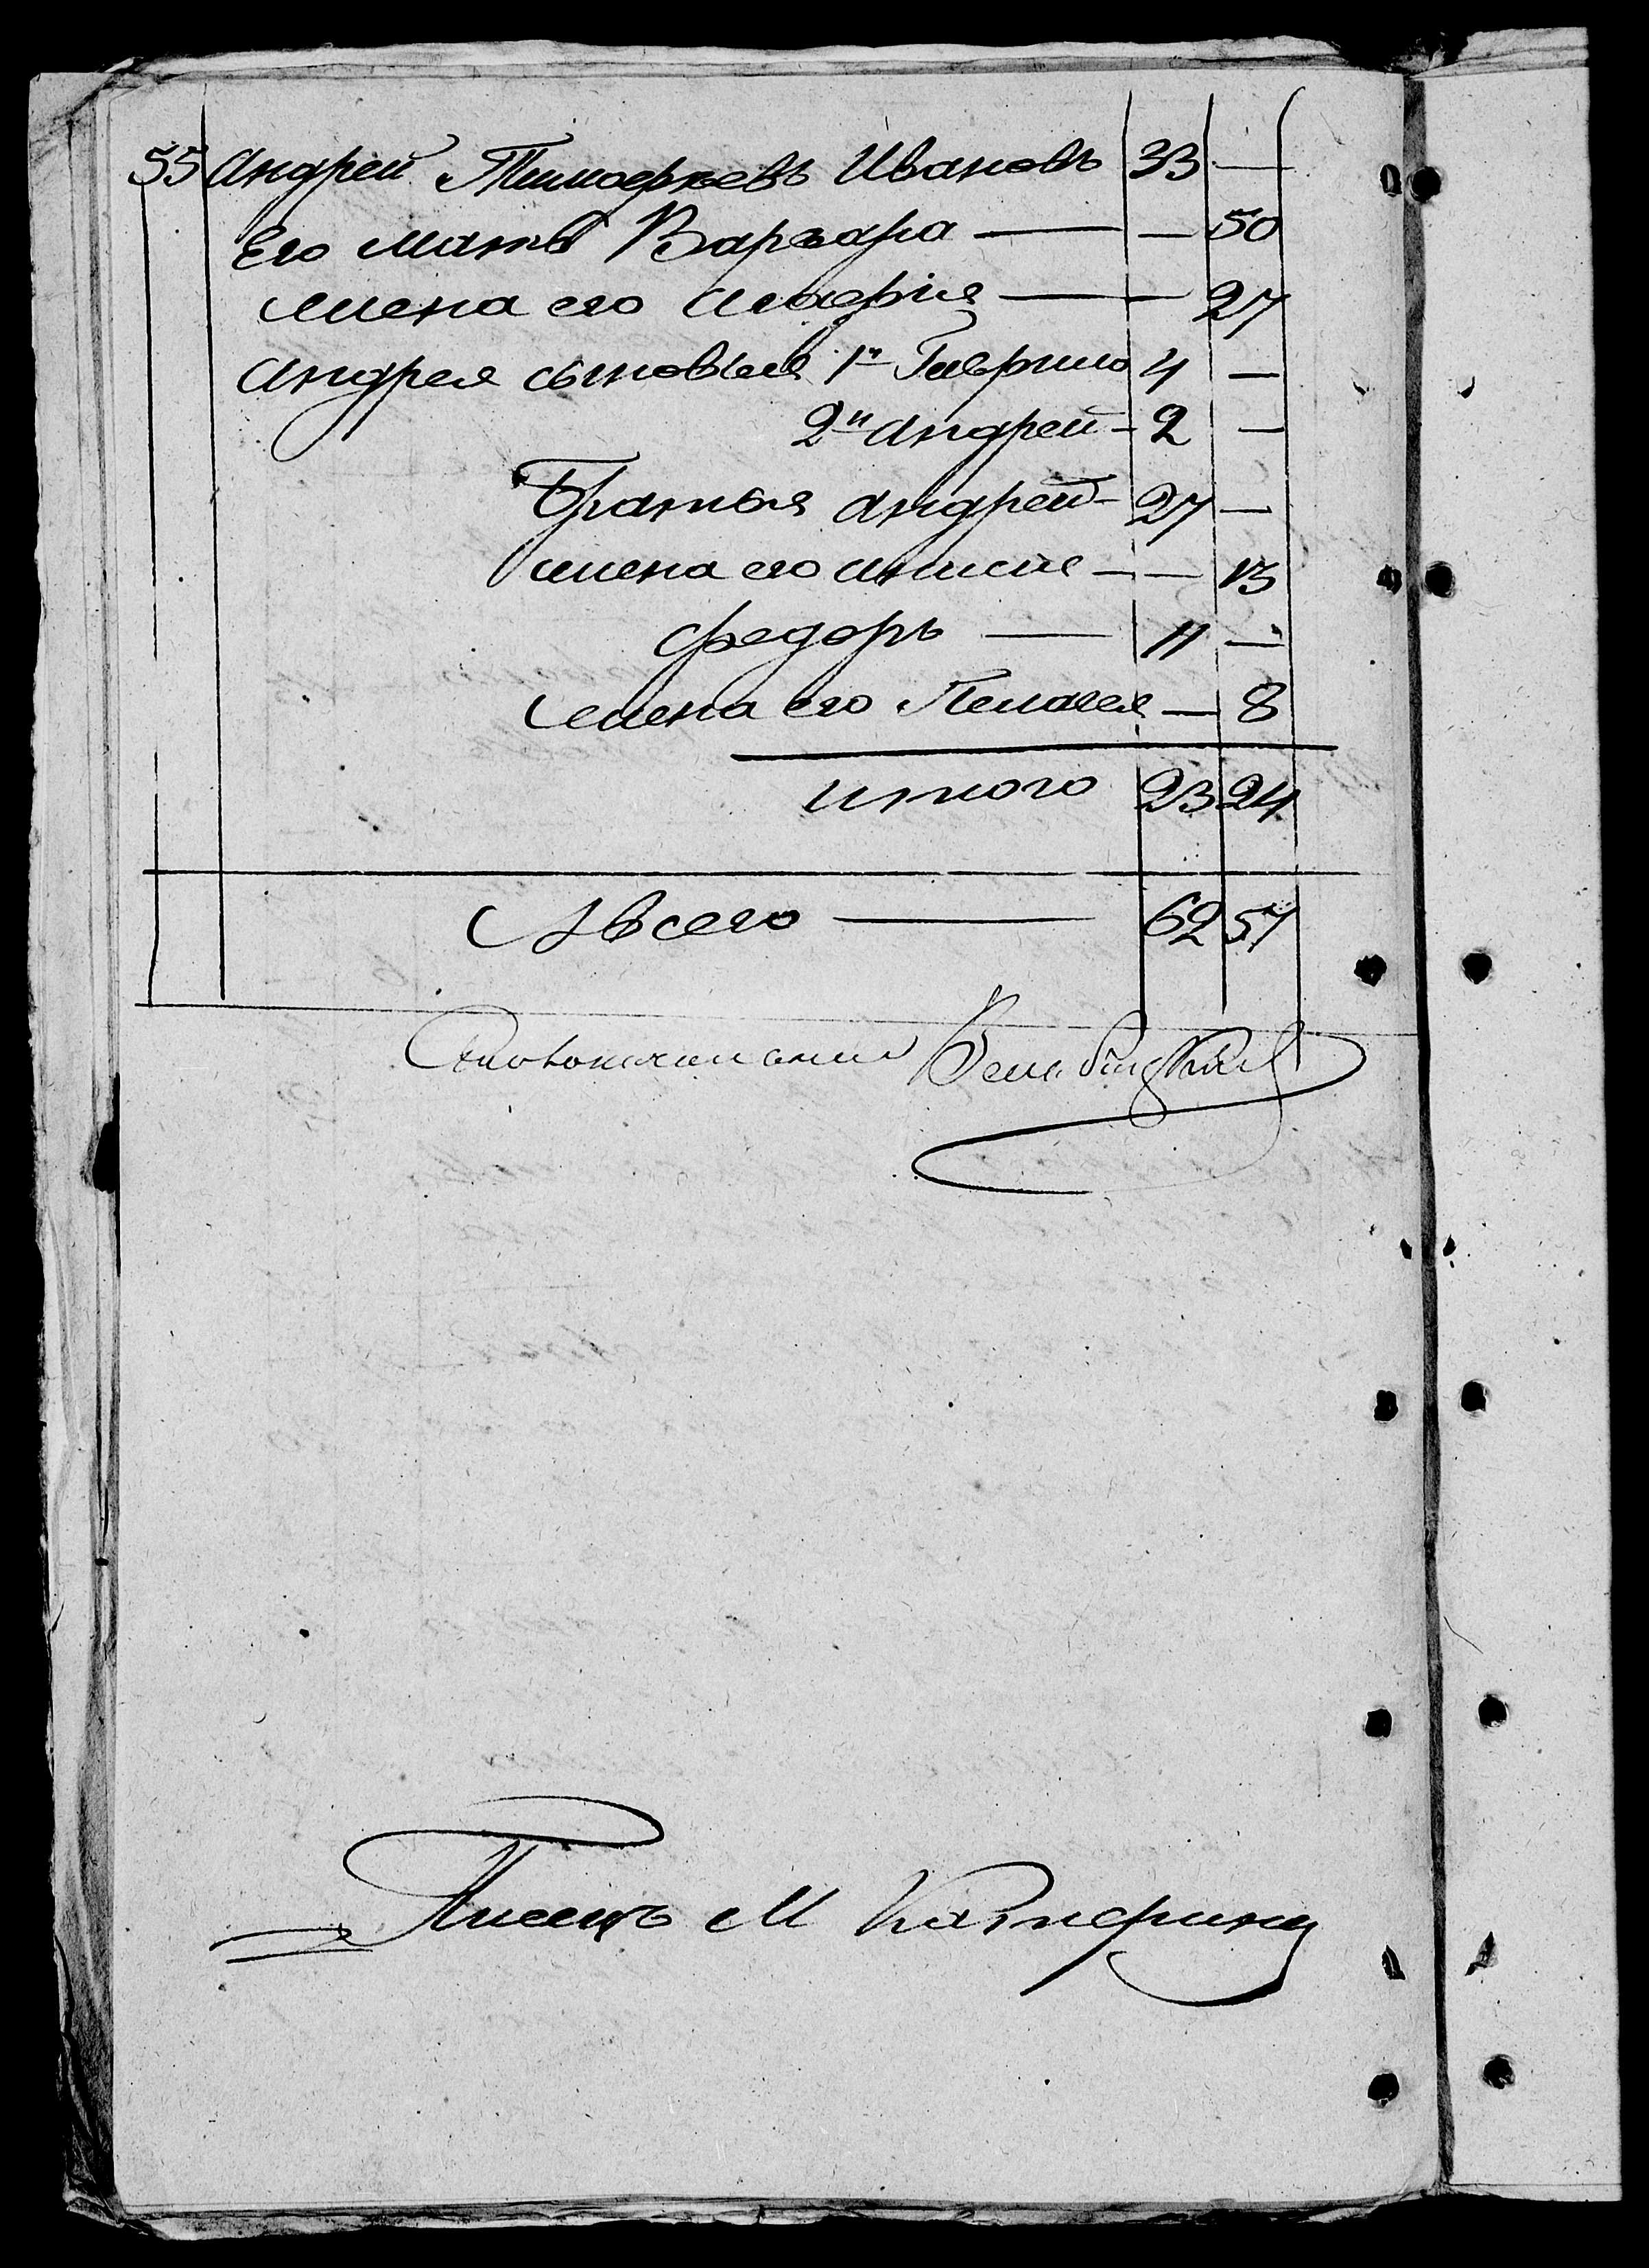 55 Андрей Тимофѣевъ Ивановъ 33 —
Его мать Варвара — — 50
жена его Марфия — — 27
Андрея сыновья 1й Гаврило 4 —
2й Андрей — 2 —
Братья Андрей — 27 —
жена его Анисия — — 13
Федоръ — 11 —
жена его Пелагея — 8
итого 23 24
А всего — 62 57
Писецъ М Катерини